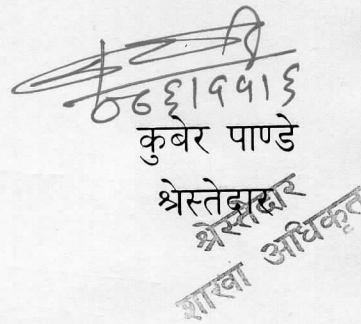 कुबेर पाण्डे
श्रेस्तेदार
श्रेस्तेदार
शाखा अधिकृत